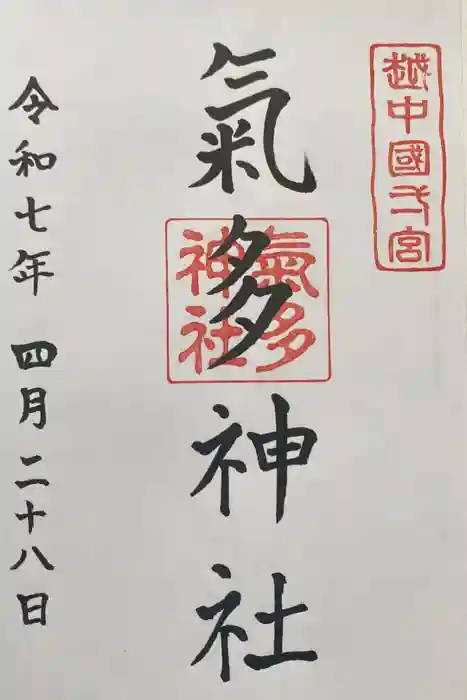 越中國一宮
氣多神社
氣多
神社
令和七年 四月二十八日